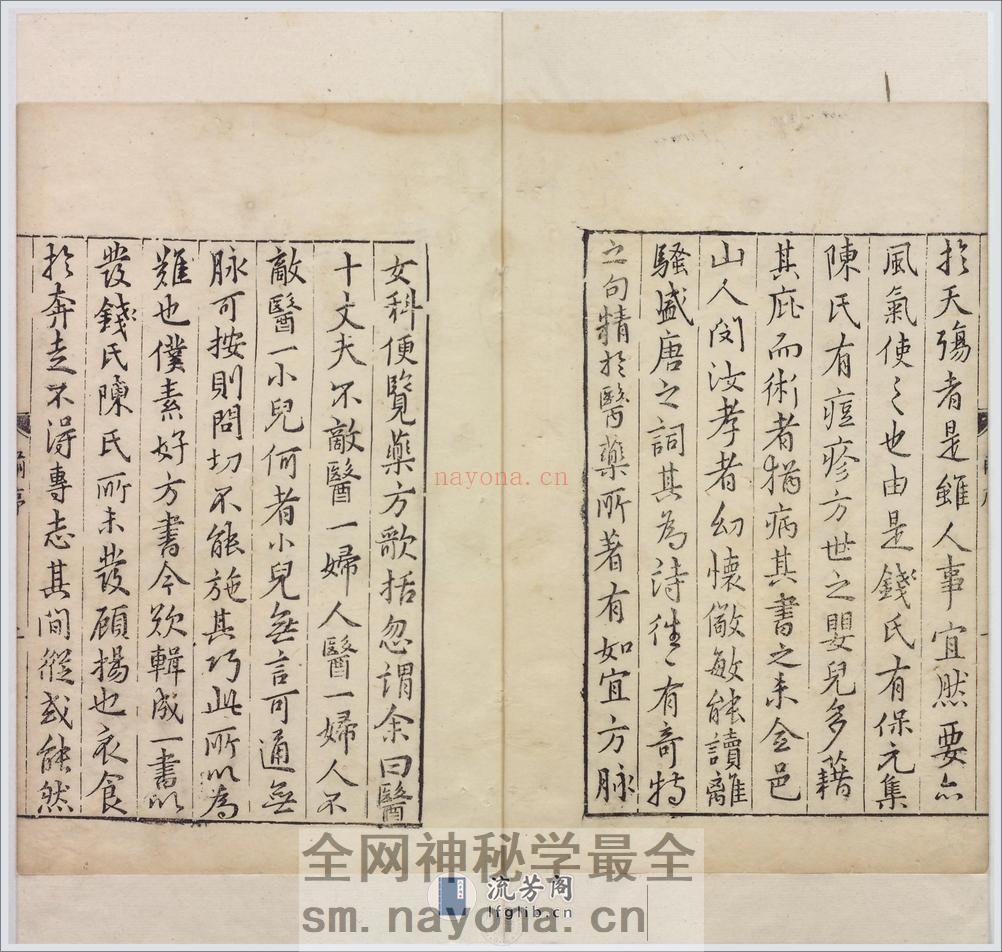 扵夭殤者是雖人事宜然要亦
風氣使之也由是錢氏有保元集
陳氏有痘疹方世之嬰兒多籍
其庇而術者猶病其書之未全邑
山人閔汝孝者幼懷儆敏能讀離
騷盛唐之詞其為詩往〻有奇特
之句精扵醫藥所著有如宜方脉
女科便覧藥方歌括忽謂余曰醫
十丈夫不敵醫一婦人醫一婦人不
敵醫一小兒何者小兒無言可通無
脉可按則問切不能施其巧此所以為
難也僕素好方書今欲輯成一書以
發錢氏陳氏所未發顧揚也衣食
扵奔走不得專志其間縱或能然
nayona.cn
全网神秘学最全
流芳阁
lfglib.cn
sm.nayona.cn